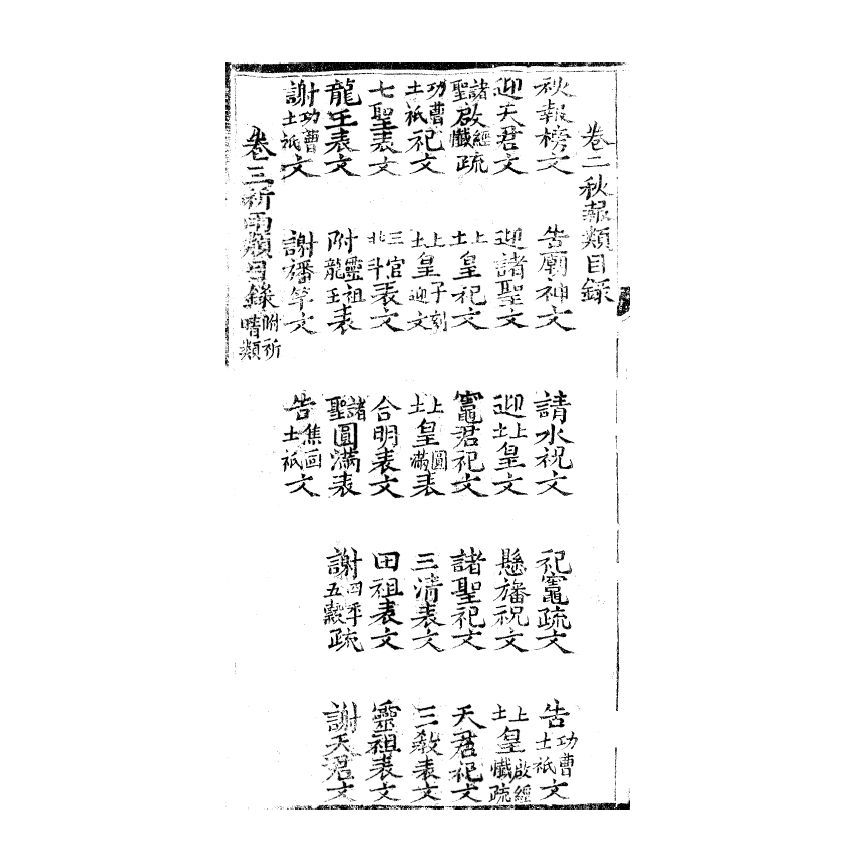 卷二秋報類目錄
秋報榜文 告廟神文 請水祝文 祀竈疏文 告功曹土祇文
迎天君文 迎諸聖文 迎上土皇文 懸旛祝文 上土皇啟經懺疏
諸聖啟經懺疏 上土皇祀文 竈君祀文 諸聖祀文 天君祀文
功曹土祇祀文 上土皇子刻迎文 上土皇圓滿表 三清表文 三教表文
七聖表文 三官北斗表文 合明表文 田祖表文 靈祖表文
龍王表文 附靈祖龍王表 諸聖圓滿表 謝四季五穀疏 謝天君文
謝功曹土祇文 謝旛竿文 告焦面土祇文
卷三祈雨類目錄附祈晴類